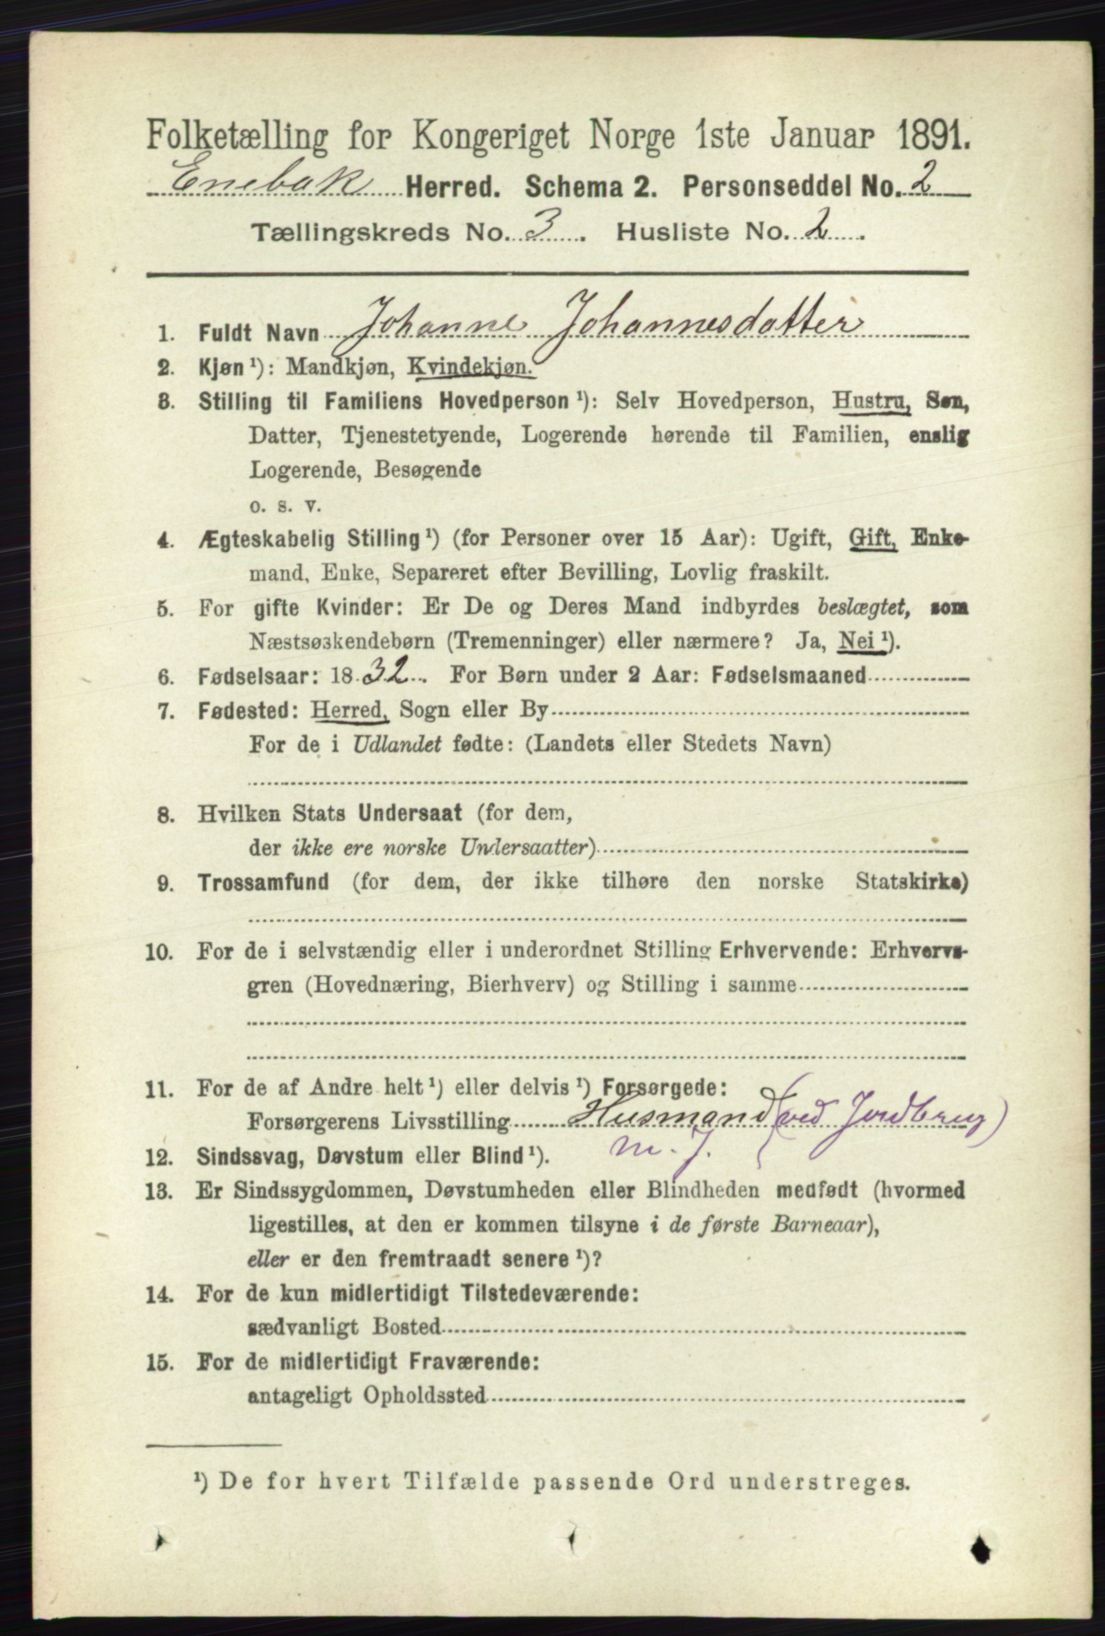 Folketælling for Kongeriget Norge 1ste Januar 1891.
Enebak Herred. Schema 2. Personseddel No. 2
Tællingskreds No. 3. Husliste No. 2.
1. Fuldt Navn Johanne Johannesdatter
2. Kjøn ¹): Mandkjøn, Kvindekjøn.
3. Stilling til Familiens Hovedperson ¹): Selv Hovedperson, Hustru, Søn,
Datter, Tjenestetyende, Logerende hørende til Familien, enslig
Logerende, Besøgende
o. s. v.
4. Ægteskabelig Stilling ¹) (for Personer over 15 Aar): Ugift, Gift, Enke-
mand, Enke, Separeret efter Bevilling, Lovlig fraskilt.
5. For gifte Kvinder: Er De og Deres Mand indbyrdes beslægtet, som
Næstsøskendebørn (Tremenninger) eller nærmere? Ja, Nei ¹).
6. Fødselsaar: 1832. For Børn under 2 Aar: Fødselsmaaned
7. Fødested: Herred, Sogn eller By
For de i Udlandet fødte: (Landets eller Stedets Navn)
8. Hvilken Stats Undersaat (for dem,
der ikke ere norske Undersaatter)
9. Trossamfund (for dem, der ikke tilhøre den norske Statskirke)
10. For de i selvstændig eller i underordnet Stilling Erhvervende: Erhvervs-
gren (Hovednæring, Bierhverv) og Stilling i samme
11. For de af Andre helt ¹) eller delvis ¹) Forsørgede:
Forsørgerens Livsstilling Husmand (ved Jordbrug)
m. J.
12. Sindssvag, Døvstum eller Blind ¹).
13. Er Sindssygdommen, Døvstumheden eller Blindheden medfødt (hvormed
ligestilles, at den er kommen tilsyne i de første Barneaar),
eller er den fremtraadt senere ¹)?
14. For de kun midlertidigt Tilstedeværende:
sædvanligt Bosted
15. For de midlertidigt Fraværende:
antageligt Opholdssted
¹) De for hvert Tilfælde passende Ord understreges.